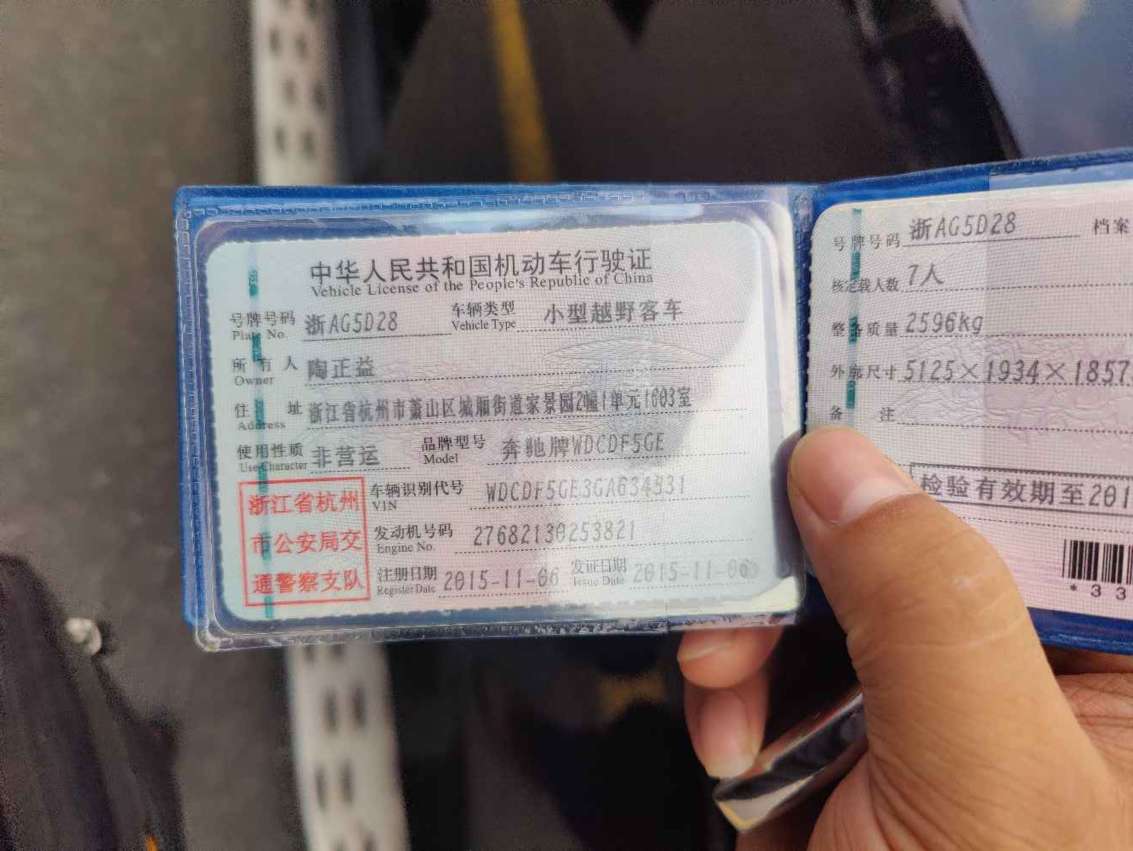 中华人民共和国机动车行驶证
Vehicle License of the People's Republic of China
号牌号码 浙AG5D28 车辆类型 小型越野客车
Plate No. Vehicle Type
所有人 陶正益
Owner
住址 浙江省杭州市萧山区城厢街道家景园2幢1单元1603室
Address
使用性质 非营运 品牌型号 奔驰牌WDCDF5GE
Use Character Model
浙江省杭州
市公安局交
通警察支队
车辆识别代号 WDCDF5GE3GA634831
VIN
发动机号码 27682130253821
Engine No.
注册日期 2015-11-06 发证日期 2015-11-06
Register Date Issue Date
号牌号码 浙AG5D28 档案
核定载人数 7人
整备质量 2596kg
外廓尺寸 5125×1934×1857
备注
检验有效期至201
*33